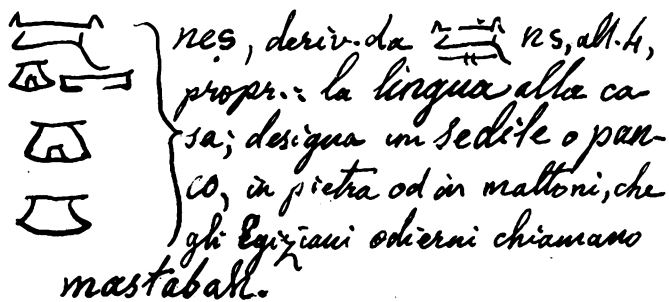 nes, deriv. da ns, all. 4,
propr.: la lingua alla ca-
sa; designa un sedile o pan-
co, in pietra od in mattoni, che
gli Egiziani odierni chiamano
mastabah.